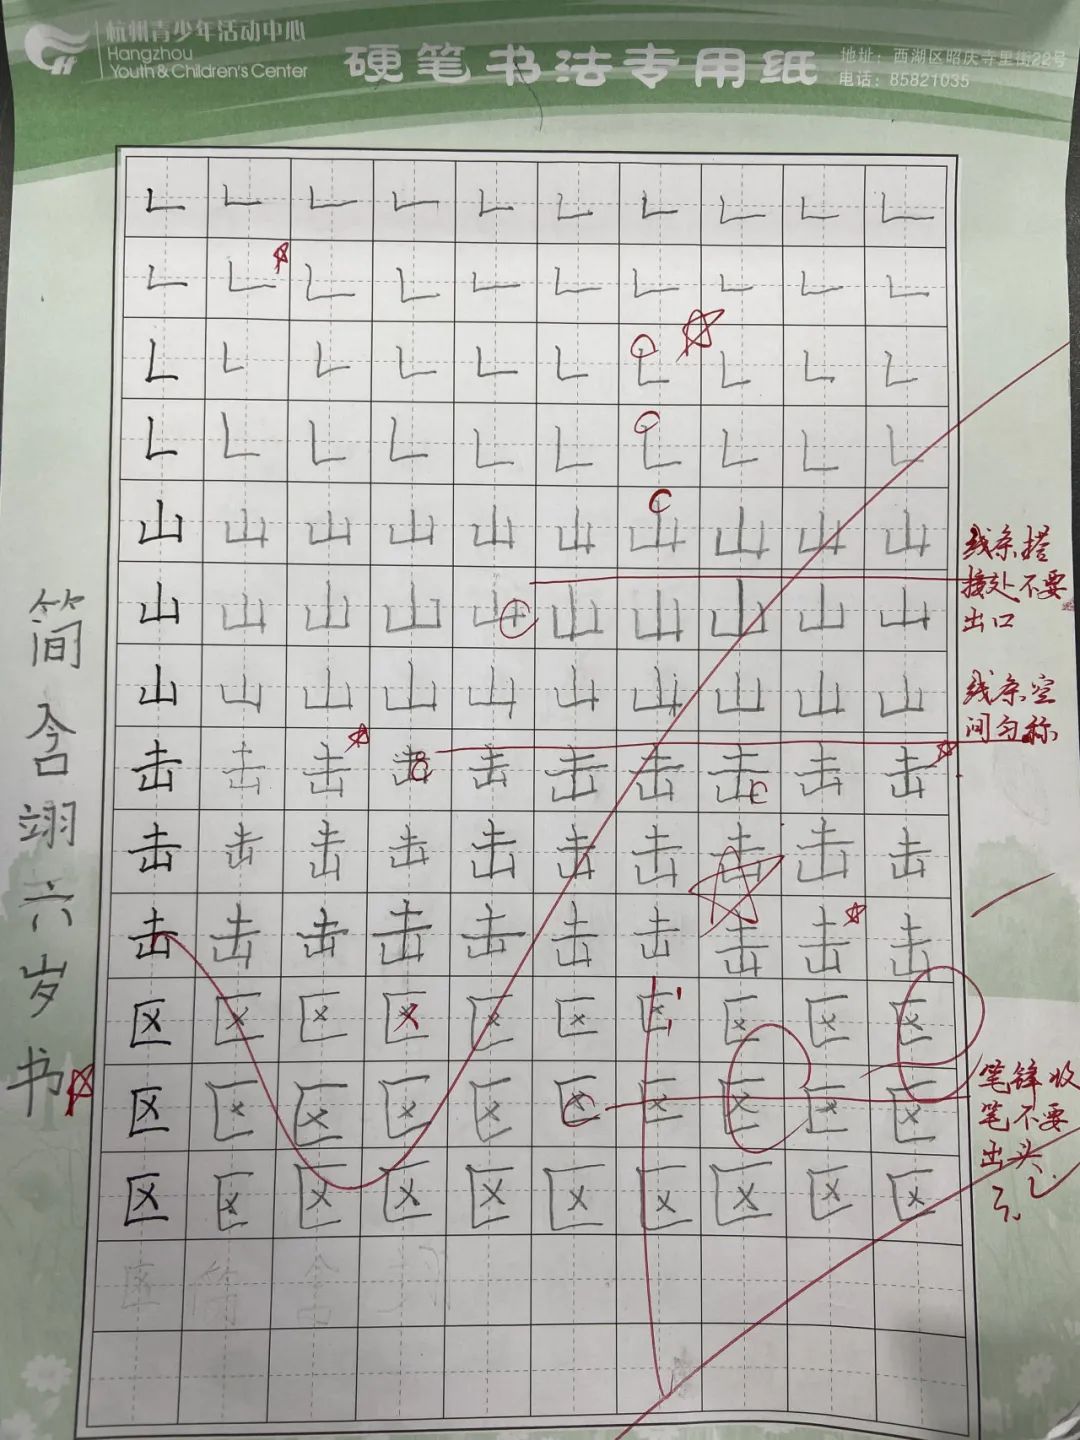 杭州青少年活动中心
Hangzhou
Youth & Children's Center
硬笔书法专用纸
地址：西湖区昭庆寺里街22号
电话：85821035
𠃊 𠃊 𠃊 𠃊 𠃊 𠃊 𠃊 𠃊 𠃊 𠃊
𠃊 𠃊 𠃊 𠃊 𠃊 𠃊 𠃊 𠃊 𠃊 𠃊
𠃊 𠃊 𠃊 𠃊 𠃊 𠃊 𠃊 𠃊 𠃊 𠃊
𠃊 𠃊 𠃊 𠃊 𠃊 𠃊 𠃊 𠃊 𠃊 𠃊
山 山 山 山 山 山 山 山 山 山
山 山 山 山 山 山 山 山 山 山
山 山 山 山 山 山 山 山 山 山
击 击 击 击 击 击 击 击 击 击
击 击 击 击 击 击 击 击 击 击
击 击 击 击 击 击 击 击 击 击
区 区 区 区 区 区 区 区 区 区
区 区 区 区 区 区 区 区 区 区
区 区 区 区 区 区 区 区 区 区
区 简 含
简含翊六岁书
线条搭
接处不要
出口
线条空
间匀称
笔锋收
笔不要
出头